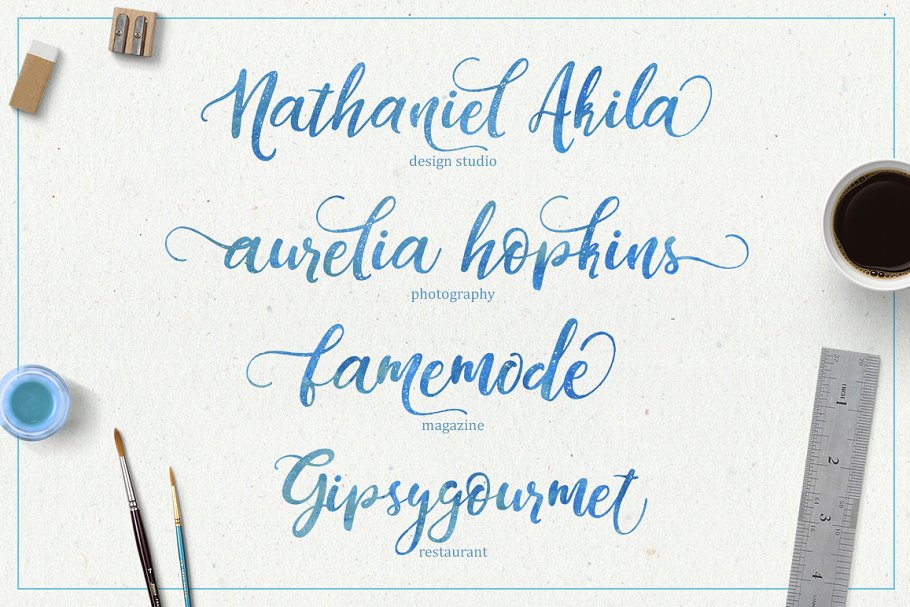 Nathaniel Akila
design studio
aurelia hopkins
photography
famemode
magazine
Gipsygourmet
restaurant
INCH
1
2
3
4